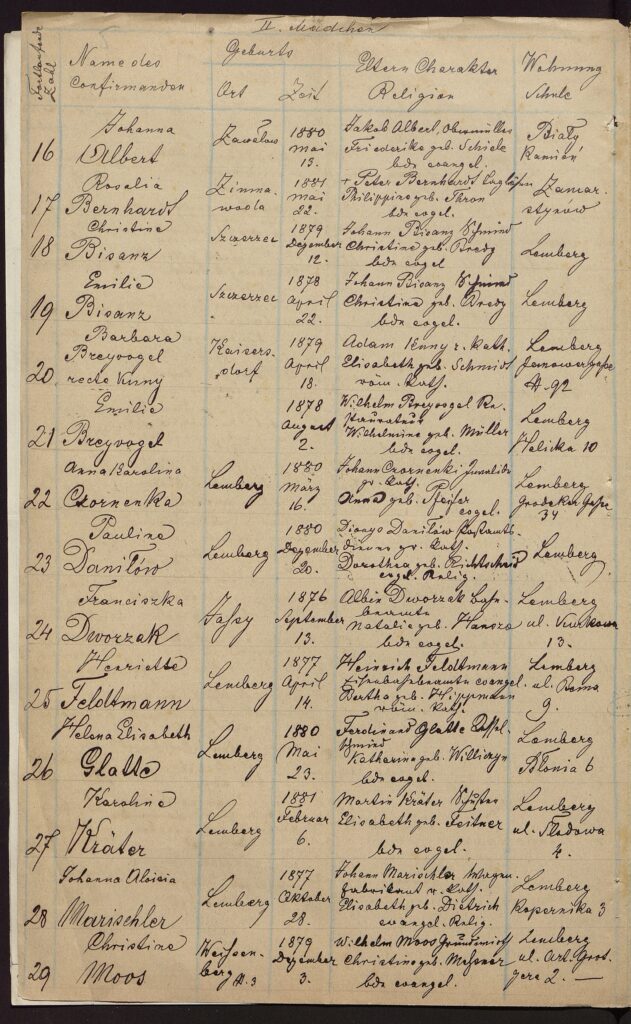 II. Mädchen
Fortlaufende Zahl
Name des Confirmanden
Geburts
Ort
Zeit
Eltern Charakter Religion
Wohnung Schule
16
Johanna
Albert
1880
Mai
13.
Jakob Albert, Obermüller
Friederike geb. Schick
bde evangel.
Biały
Kamień
17
Rosalia
Bernhardt
Zimna
woda
1881
Mai
22.
+ Peter Bernhardt
Philippine geb. Thron
bde evgel.
Zamar-
stynów
18
Christine
Bisanz
Szczerzec
1879
Dezember
12.
Johann Bisanz Schmied
Christine geb. Bredy
bde evgel
Lemberg
19
Emilie
Bisanz
Szczerzec
1878
April
22.
Johann Bisanz Schmied
Christine geb. Bredy
bde evgel.
Lemberg
20.
Barbara
Breyvogel
recte Kuny
Kaisers-
dorf
1879
April
18.
Adam Kuny r. kath.
Elisabeth geb. Schmidt
röm. kath.
Lemberg
Janowergasse
No. 92
21
Emilie
Breyvogel
1878
August
2.
Wilhelm Breyvogel Re-
staurateur
Wilhelmine geb. Müller
bde evgel.
Lemberg
22
Anna Karolina
Czornenka
Lemberg
1880
März
16.
Johann Czornenki Invalide
gr. kath.
Anna geb. Pfeifer
evgel.
Lemberg
Grodeker Gasse
34
23
Pauline
Daniłów
Lemberg
1880
Dezember
20.
Dionys Daniłów Postamts-
diener gr. kath.
Dorothea geb.
evgel. Relig.
Lemberg
24
Franciszka
Dworzak
Jassy
1876
September
13.
Albin Dworzak
beamte
Natalie geb.
bde evgel.
Lemberg
ul. Kurkowa
13.
25
Henriette
Feldtmann
Lemberg
1877
April
14.
Heinrich Feldtmann
Eisenbahnbeamte evangel.
Bertha geb. Hippmann
röm. kath.
Lemberg
ul. Bema
9.
26
Helena Elisabeth
Glatte
Lemberg
1880
Mai
23.
Ferdinand Glatte Kessel-
schmied
Katharine geb.
bde evgel.
Lemberg
Błonia 6
27
Karoline
Kräter
Lemberg
1881
Februar
6.
Martin Kräter Schuster
Elisabeth geb. Feitner
bde evgel.
Lemberg
ul. Śladowa
4.
28
Johanna Aloisia
Marischler
Lemberg
1877
Oktober
28.
Johann Marischler Wagen-
fabrikant r. kath.
Elisabeth geb. Dietrich
evangel. Relig.
Lemberg
Kopernika 3
29
Christine
Moos
Weissen-
berg No. 3
1879
Dezember
3.
Wilhelm Moos Grundwirt
Christine geb. Messner
bde evangel.
Lemberg
ul. Art. Grot-
gera 2. —